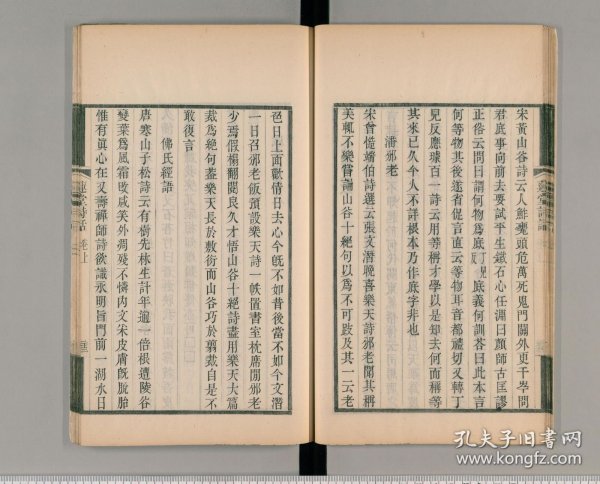 宋黃山谷詩云人鮓甕頭危萬死鬼門關外更千岑問
君底事向前去要試平生鐵石心任淵曰顏師古匡謬
正俗云問曰謂何物爲底丁兒底義何訓荅曰此本言
何等物其後遂省促言直云等物耳音都禮切又轉丁
見反應璩百一詩云用等稱才學以是知去何而稱等
其來已久今人不詳根本乃作底字非也
潘邠老
宋曾慥端伯詩選云張文潛晚喜樂天詩邠老聞其稱
美輒不樂嘗誦山谷十絕句以爲不可跂及其一云老
色日上面歡情日去心今旣不如昔後當不如今文潛
一日召邠老飯預設樂天詩一帙置書室枕席間邠老
少焉假榻翻閱良久才悟山谷十絕詩盡用樂天大篇
裁爲絕句蓋樂天長於敷衍而山谷巧於翦裁自是不
敢復言
佛氏經語
唐寒山子松詩云有樹先林生計年逾一倍根遭陵谷
變葉爲風霜改咸笑外凋殘不憐內文采皮膚旣脫胎
惟有眞心在又壽禪師詩欲識永明旨門前一湖水日
蓮堂詩話
卷上
孔夫子旧書网
www.kongfz.com